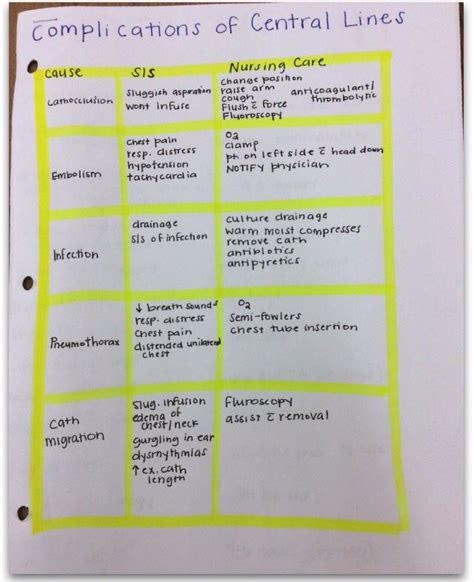 Complications of Central Lines
Cause S/S Nursing Care
Cath occlusion
Sluggish aspiration
wont infuse
change position
raise arm
cough
Flush c̄ force
Fluoroscopy
anticoagulant/
thrombolytic
Embolism
Chest pain
resp. distress
hypotension
tachycardia
O2
clamp
pt on left side c̄ head down
NOTIFY physician
Infection
drainage
S/S of infection
culture drainage
warm moist compresses
remove cath
antibiotics
antipyretics
Pneumothorax
↓ breath sounds
resp. distress
chest pain
distended unilateral
chest
O2
semi-fowlers
chest tube insertion
Cath
migration
Slug. infusion
edema of
chest/neck
gurgling in ear
dysrhythmias
↑ ex. cath
length
Fluroscopy
assist c̄ removal